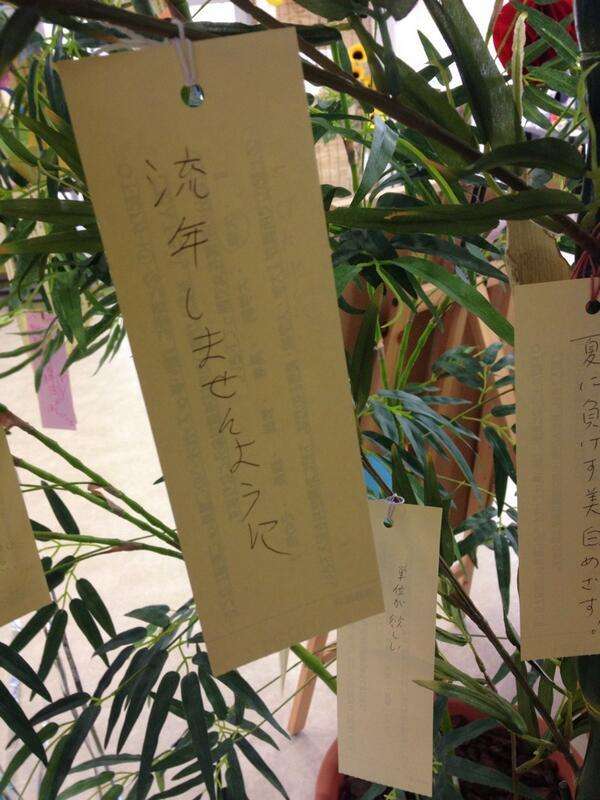 流年しませんように
単位が欲しい
夏に負けず美白めざす。